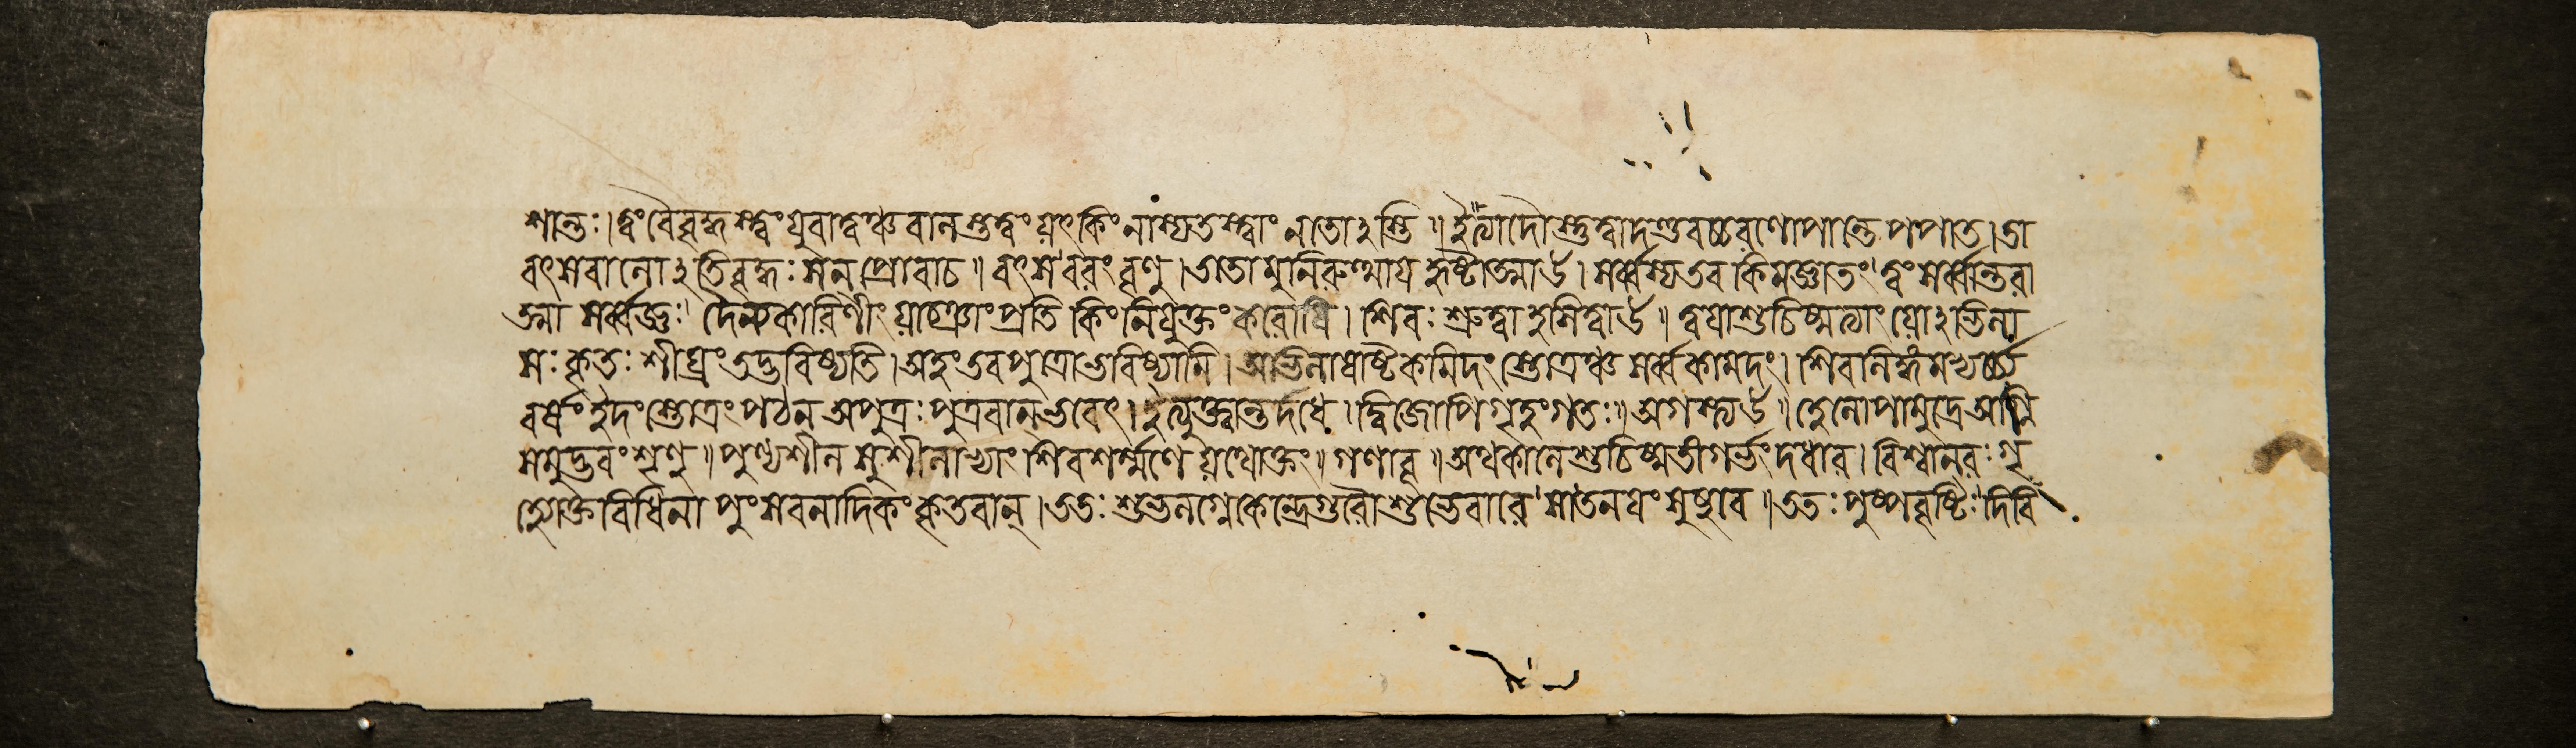 শান্তঃ।ত্বং বৈ বৃদ্ধস্ত্বং যুবা ত্বঞ্চ বালস্তত্ত্বং যৎ কিং নাস্যতস্ত্বাং নতোঽস্মি॥ইত্যাদৌ স্তুত্বা দণ্ডবচ্চরণোপান্তে পপাত।তা
বৎ সবালোঽতিবৃদ্ধঃ সন্ প্রোবাচ॥বৎস বরং বৃণু।ততো মুনিরুত্থায় হৃষ্টাত্মাহ।সর্ব্বস্য তব কিমজ্ঞাতং ত্বং সর্ব্বান্তরা
ত্মা সর্ব্বজ্ঞঃ দৈন্যকারিণীং যাচ্ঞাং প্রতি কিং নিযুক্তং করোষি।শিবঃ শ্রুত্বা হসিত্বাহ॥ত্বয়া শুচিষ্মত্যাং যোঽভিলা
ষঃ কৃতঃ শীঘ্রং তদ্ভবিষ্যতি।অহং তব পুত্রো ভবিষ্যামি।অভিলাষাষ্টকমিদং স্তোত্রঞ্চ সর্ব্বকামদং।শিবালিঙ্গমভ্যর্চ্চ্য
বর্ষং ইদং স্তোত্রং পঠন্ অপুত্রঃ পুত্রবান্ ভবেৎ।ইত্যুক্ত্বান্তর্দধে।দ্বিজোপি গৃহং গতঃ॥অগস্ত্য উ॥হে লোপামুদ্রে অগ্নি
সমুদ্ভবং শৃণু॥পুণ্যশীল সুশীলাভ্যাং শিবশর্ম্মণে যথোক্তং॥গণাবূ॥অথ কালে শুচিষ্মতী গর্ভং দধার।বিশ্বানরঃ গৃ
হ্যোক্তবিধিনা পুংসবনাদিকং কৃতবান্।ততঃ শুভলগ্নে কেন্দ্রে গুরৌ শুভে বারে সা তনয়ং সুষুবে॥ততঃ পুষ্পবৃষ্টিঃ দিবি